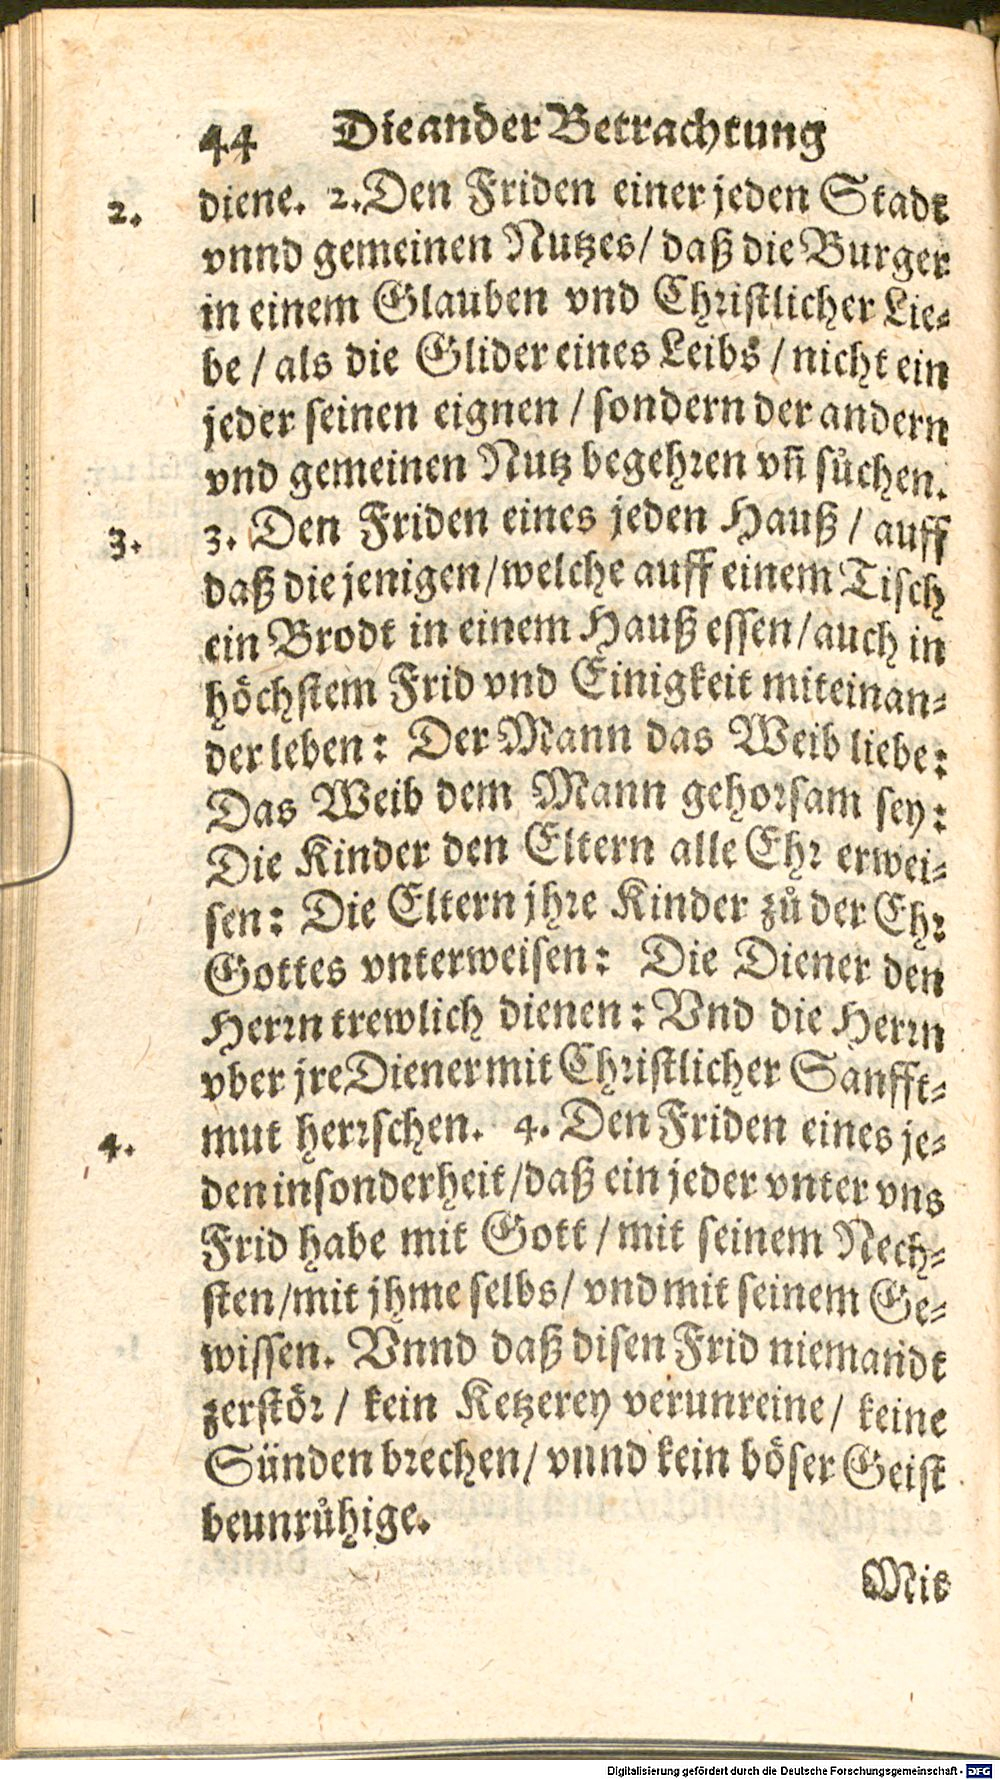 44 Die ander Betrachtung
2. diene. 2. Den Friden einer jeden Stadt
vnnd gemeinen Nutzes/ daß die Burger
in einem Glauben vnd Christlicher Lie-
be / als die Glider eines Leibs / nicht ein
jeder seinen eignen / sondern der andern
vnd gemeinen Nutz begehren vñ sůchen.
3. 3. Den Friden eines jeden Hauß / auff
daß die jenigen/welche auff einem Tisch
ein Brodt in einem Hauß essen/auch in
höchstem Frid vnd Einigkeit miteinan-
der leben: Der Mann das Weib liebe:
Das Weib dem Mann gehorsam sey:
Die Kinder den Eltern alle Ehr erwei-
sen: Die Eltern jhre Kinder zů der Ehr
Gottes vnterweisen: Die Diener den
Herrn trewlich dienen: Vnd die Herrn
vber jre Diener mit Christlicher Sanfft-
4. mut herrschen. 4. Den Friden eines je-
den insonderheit/daß ein jeder vnter vns
Frid habe mit Gott / mit seinem Nech-
sten/mit jhme selbs/ vnd mit seinem Ge-
wissen. Vnnd daß disen Frid niemandt
zerstör / kein Ketzerey verunreine/ keine
Sünden brechen/ vnnd kein böser Geist
beunrůhige.
Mit
Digitalisierung gefördert durch die Deutsche Forschungsgemeinschaft - DFG